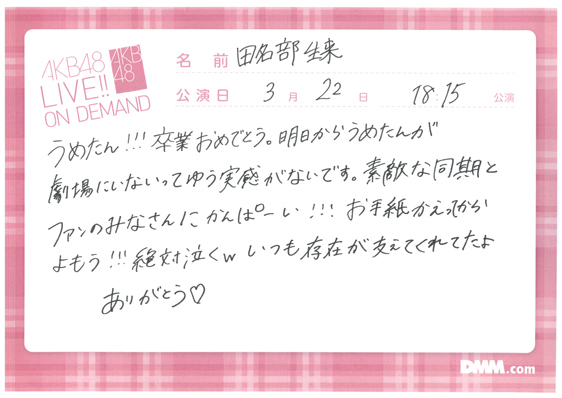 AKB48
LIVE!!
ON DEMAND
AKB
48
名前 田名部生来
公演日 3月22日 18:15 公演
うめたん!!! 卒業おめでとう。明日からうめたんが
劇場にいないってゆう実感がないです。素敵な同期と
ファンのみなさんにかんぱーい!!! お手紙かえってから
よもう!!! 絶対泣くw いつも存在が支えてくれてたよ
ありがとう♡
DMM.com